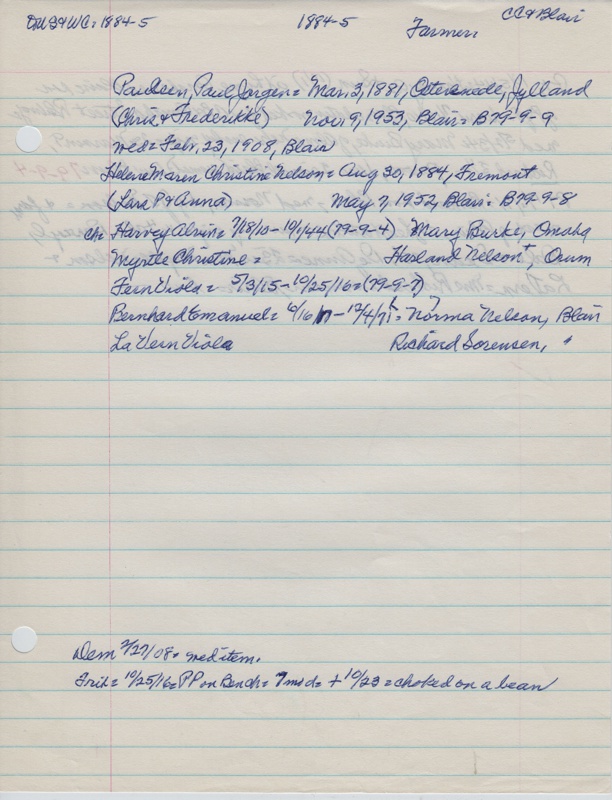 1884-5 1884-5 Farmer. CC & Blair
Paulsen, Paul Jorgen = Mar. 3, 1881, Jylland
(Chris & Frederikke) Nov. 9, 1953, Blair = B79-9-9
wed = Febr. 23, 1908, Blair
Helene Maren Christine Nelson = Aug 30, 1884, Fremont
(Lars P & Anna) May 7, 1952, Blair = B79-9-8
ch. Harvey Alvin = 7/18/10-10/1/44 (79-9-4) Mary Burke, Omaha
Myrtle Christine = Harland Nelson +, Orum
Fern Viola = 5/3/15-10/25/16 = (79-9-7)
Bernhard Emanuel = - 12/4/71 = Norma Nelson, Blair
La Vern Viola Richard Sorensen, "
Dem 2/27/08 = wed item.
Trib = 10/25/16 = PP on Bench = + 10/23 = choked on a bean